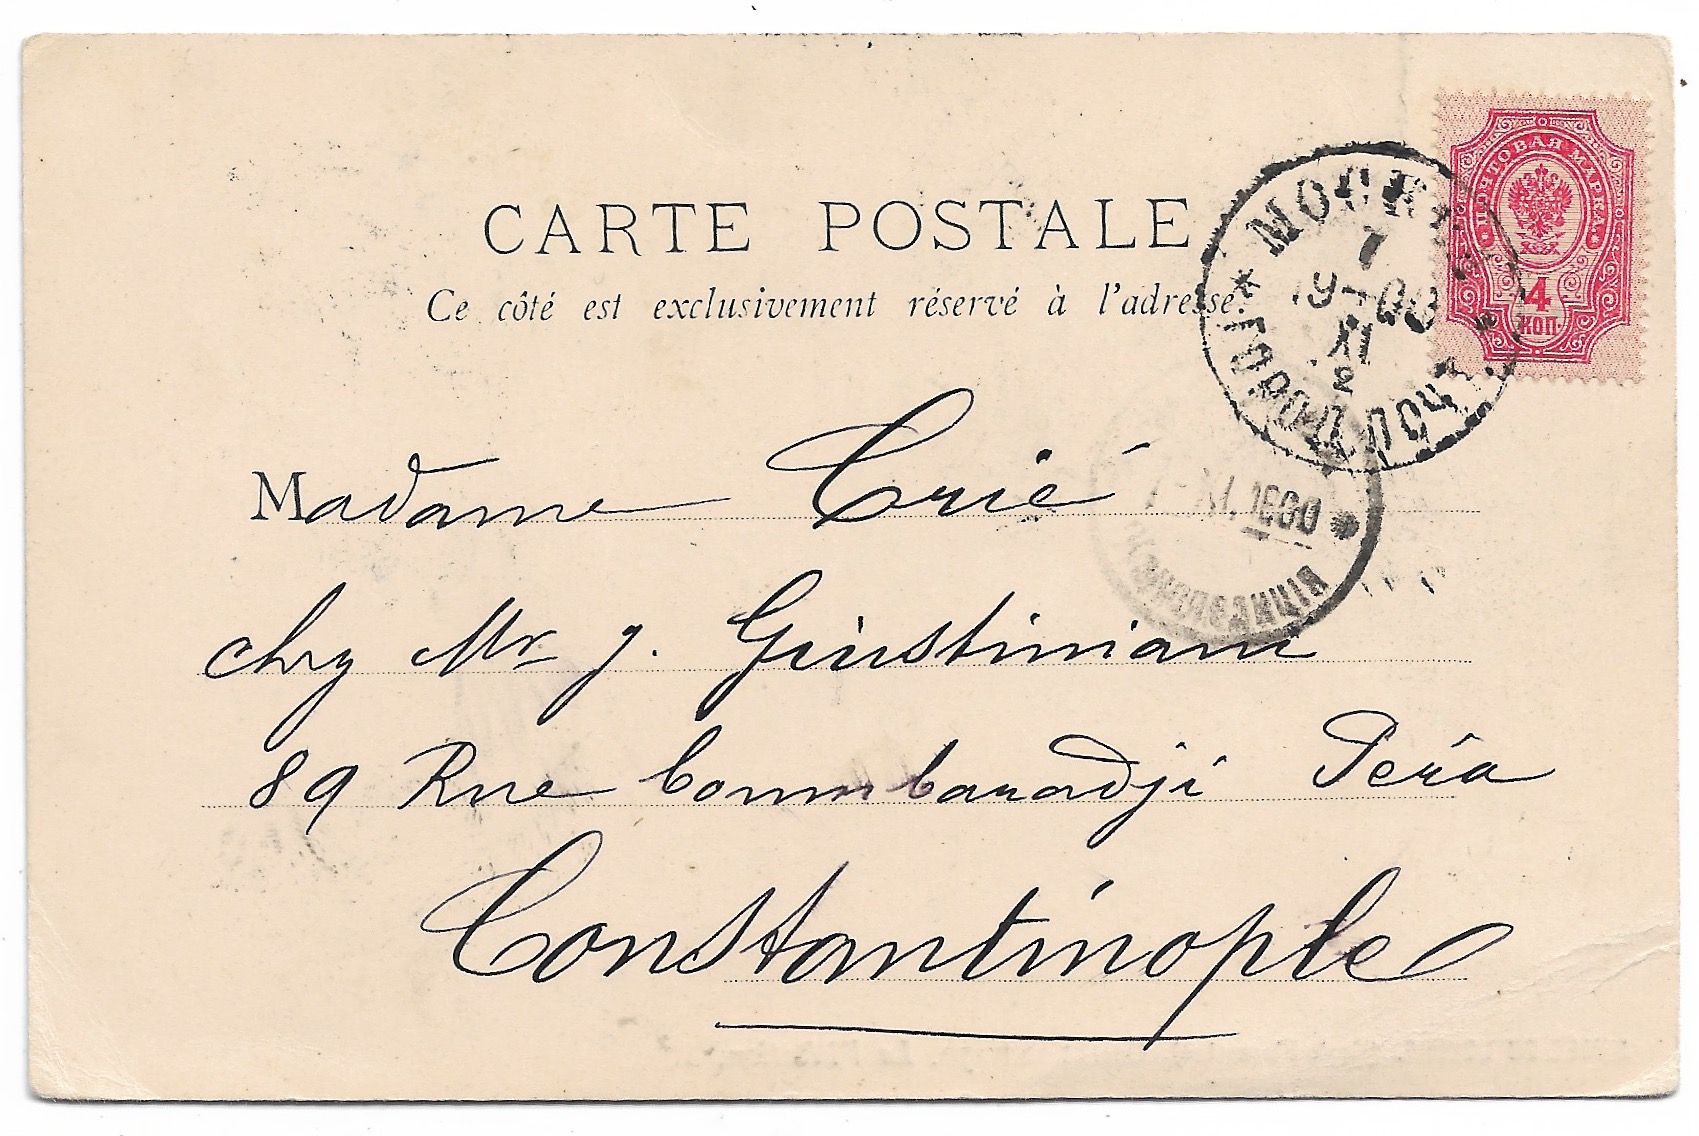 CARTE POSTALE
Ce côté est exclusivement réservé à l'adresse.
ПОЧТОВАЯ МАРКА
4
КОП.
МОСКВА
7
19-00
XI
2
ГОРОД. ПОЧТ
Madame Crié
XI.1900
chez Mr J. Giustiniani
89 Rue Coumbaradji Péra
Constantinople